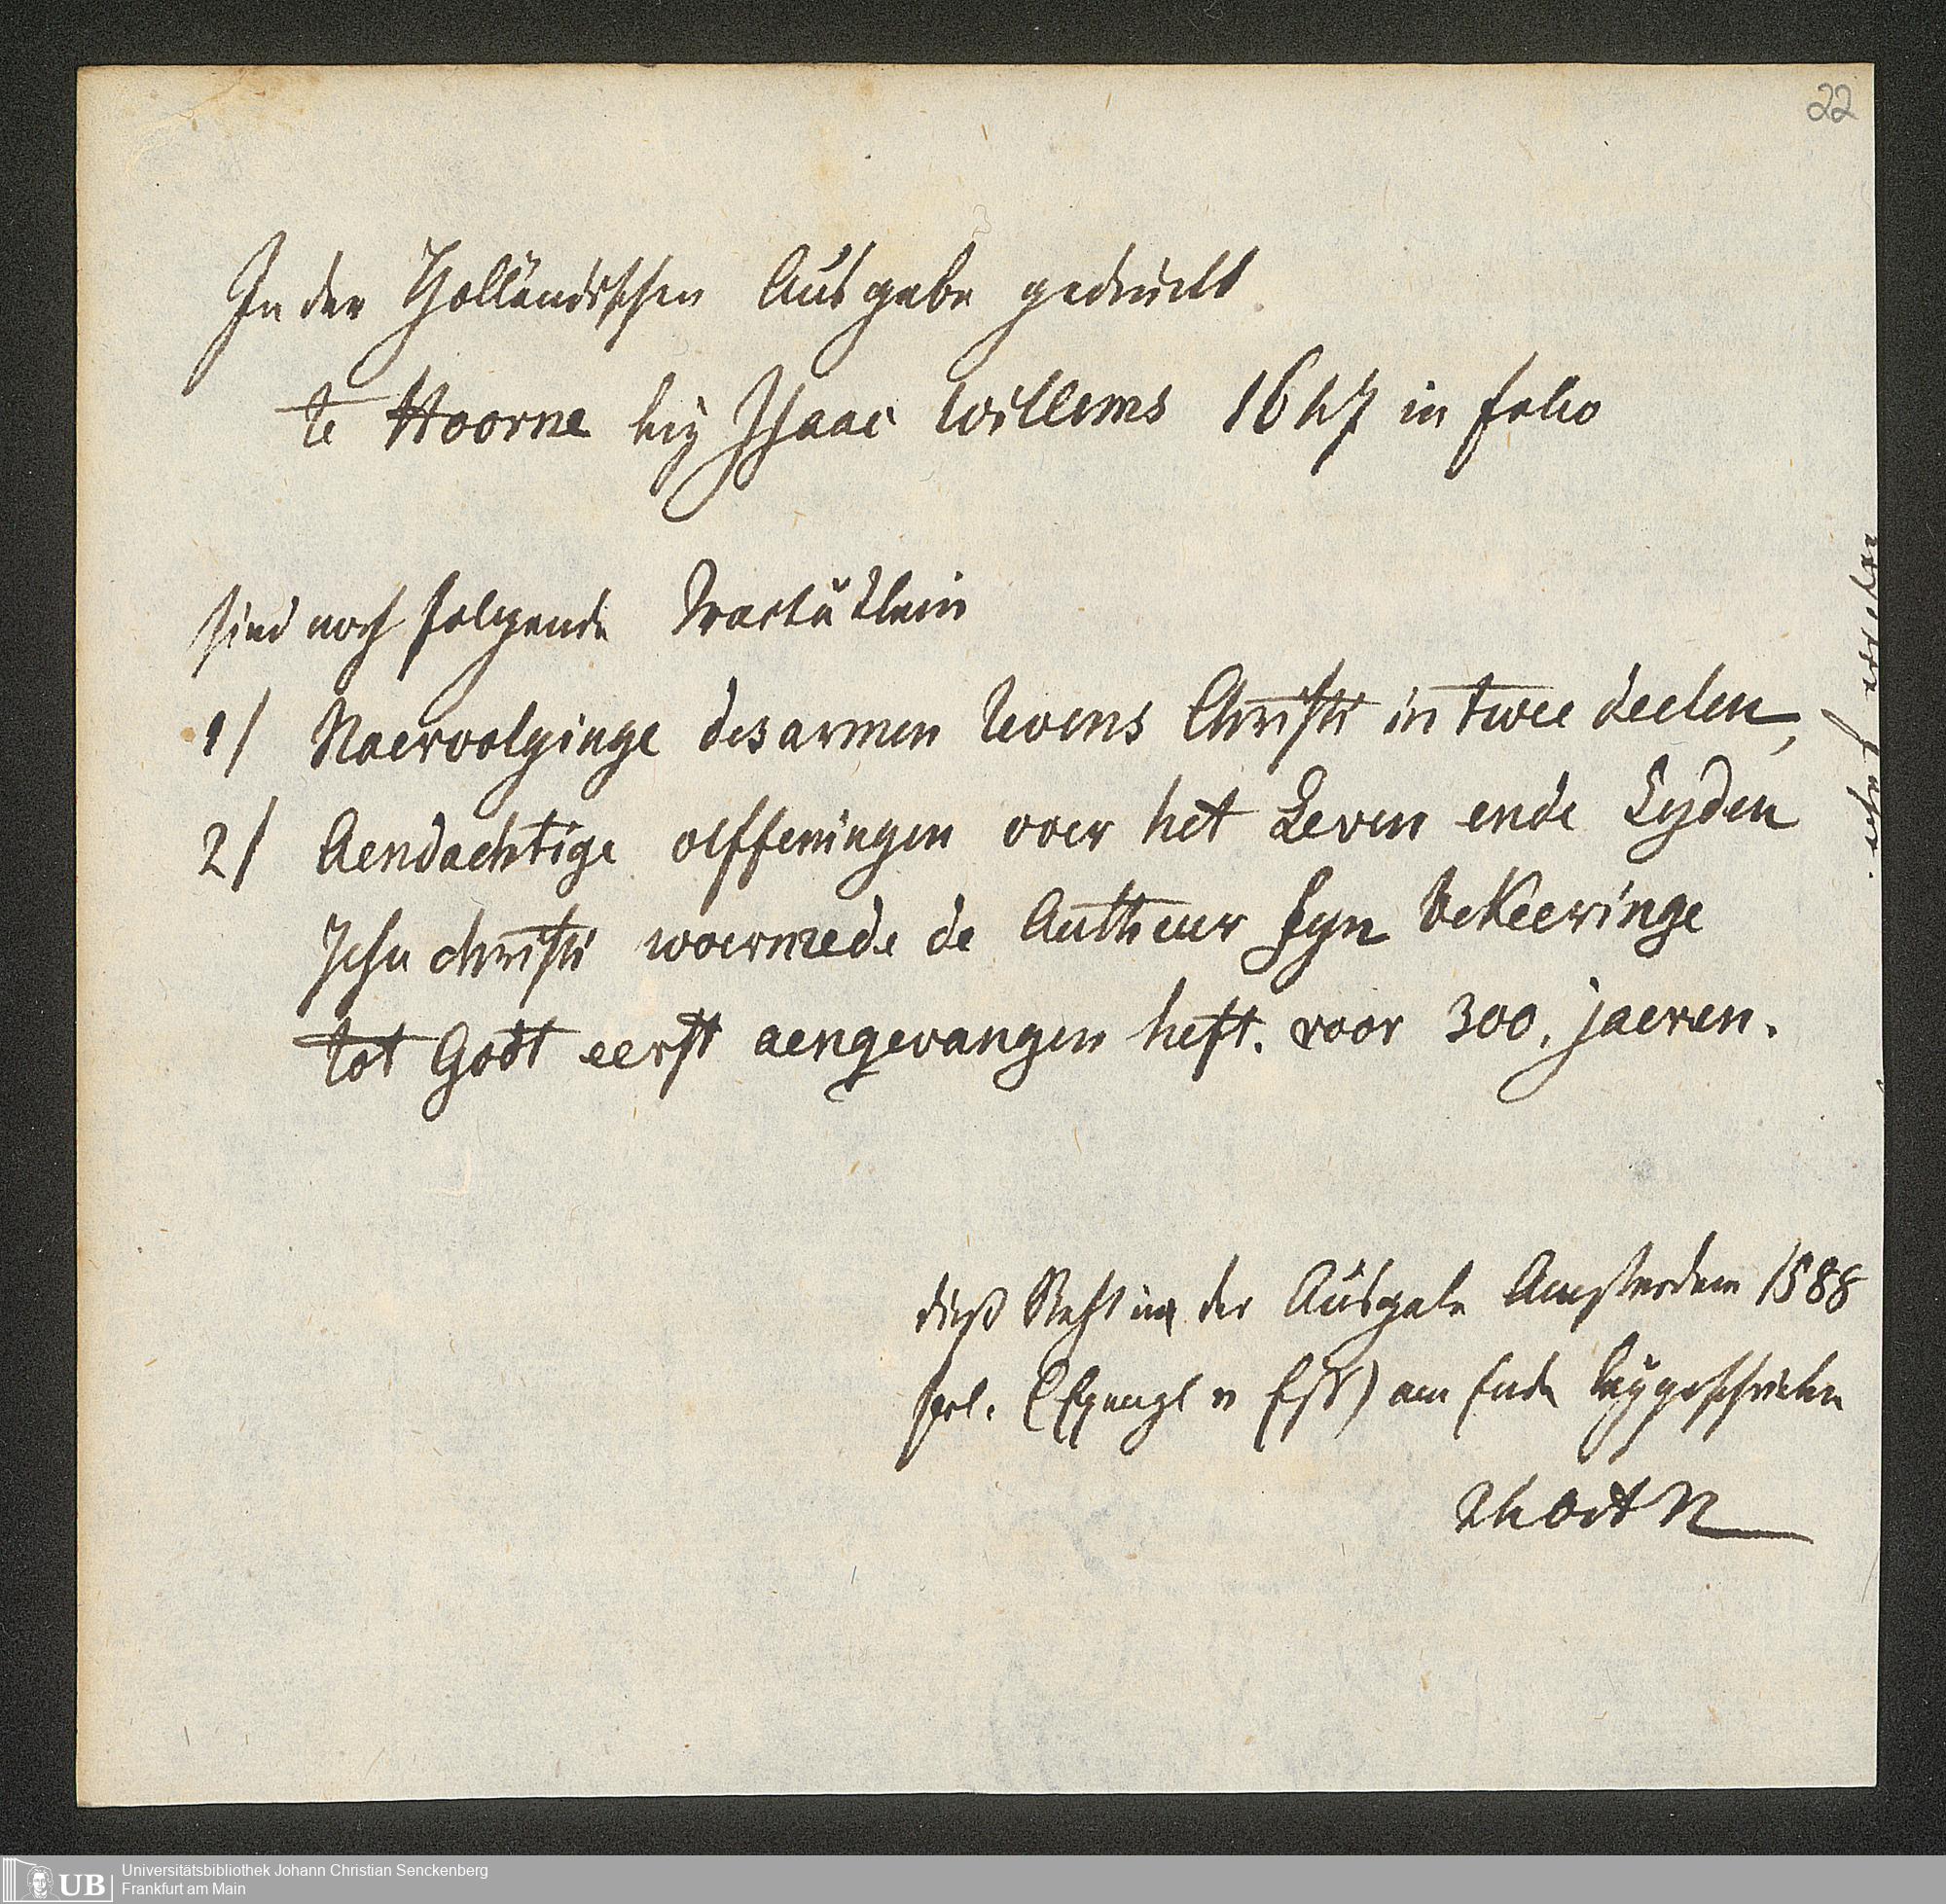 22
In der Holländischen Ausgabe gedruckt
te Hoorne by Isaac Willems 1647 in folio
sind noch folgende Tractätlein
1/ Naervolginge des armen levens Christi in twee deelen,
2/ Aendachtige oeffeningen over het Leven ende Lyden
Jesu christi waermede de Autheur syn bekeeringe
tot Godt eerst aengevangen heft. voor 300. jaeren.
dieß steht in der Ausgabe Amsterdam 1588
am Ende beygeschrieben
UB Universitätsbibliothek Johann Christian Senckenberg
Frankfurt am Main